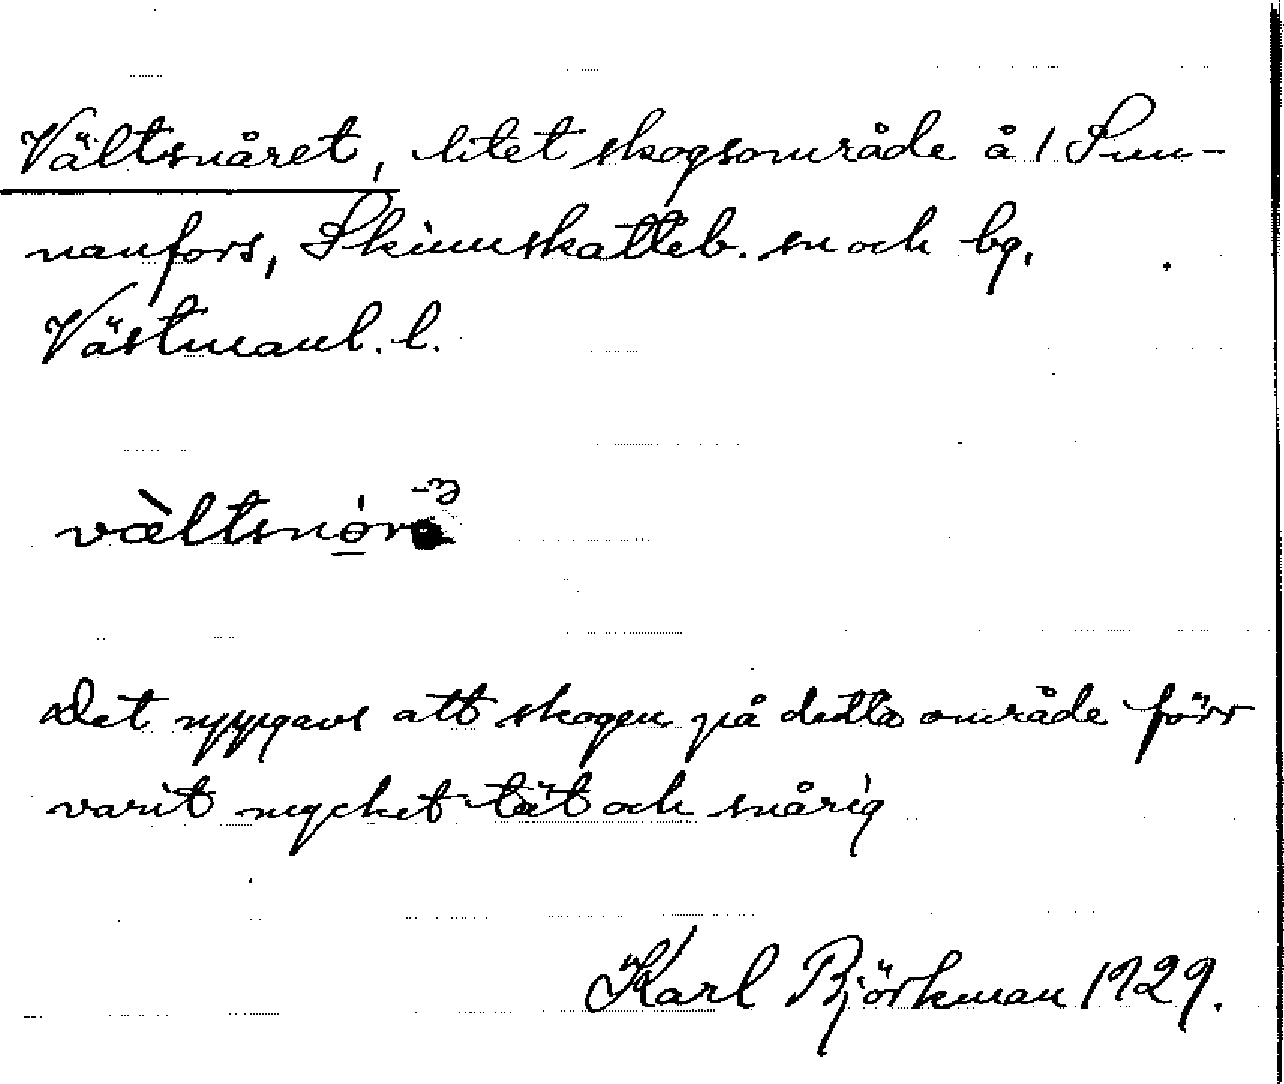 Vältsnåret, litet skogsområde å 1 Sun-
nanfors, Skinnskatteb. sn och bg.
Västmanl. l.
vältsnó̱r
Det uppgavs att skogen på detta område förr
varit mycket tät och snårig
Karl Björkman 1929.